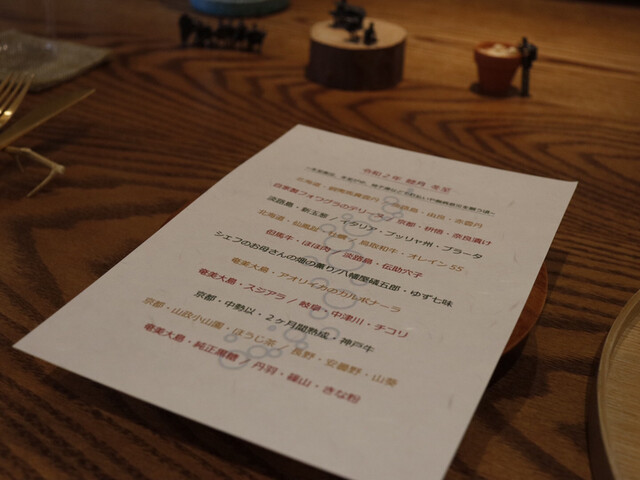 令和２年 睦月 冬至
自家製フォワグラのテリーヌ / 京都・耕悟・奈良漬け
淡路島・新玉葱 / イタリア・プッリャ州・ブラータ
鳥取和牛・オレイン55
但馬牛・ほほ肉 / 淡路島・伝助穴子
シェフのお母さんの畑の薫り/八幡屋礒五郎・ゆず七味
奄美大島・アオリイカのカルボナーラ
奄美大島・スジアラ / 岐阜・中津川・チコリ
京都・中勢以・２ヶ月間熟成・神戸牛
京都・山政小山園・ほうじ茶 / 長野・安曇野・山葵
奄美大島・純正黒糖 / 丹羽・篠山・きな粉